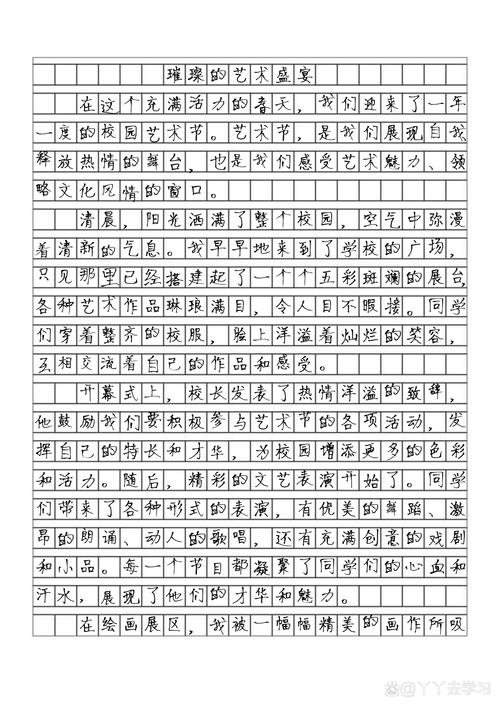 璀璨的艺术盛宴
在这个充满活力的春天，我们迎来了一年
一度的校园艺术节。艺术节，是我们展现自我
释放热情的舞台，也是我们感受艺术魅力、领
略文化风情的窗口。
清晨，阳光洒满了整个校园，空气中弥漫
着清新的气息。我早早地来到了学校的广场，
只见那里已经搭建起了一个个五彩斑斓的展台
各种艺术作品琳琅满目，令人目不暇接。同学
们穿着整齐的校服，脸上洋溢着灿烂的笑容，
互相交流着自己的作品和感受。
开幕式上，校长发表了热情洋溢的致辞，
他鼓励我们要积极参与艺术节的各项活动，发
挥自己的特长和才华，为校园增添更多的色彩
和活力。随后，精彩的文艺表演开始了。同学
们带来了各种形式的表演，有优美的舞蹈、激
昂的朗诵、动人的歌唱，还有充满创意的戏剧
和小品。每一个节目都凝聚了同学们的心血和
汗水，展现了他们的才华和魅力。
在绘画展区，我被一幅幅精美的画作所吸
@丫丫去学习